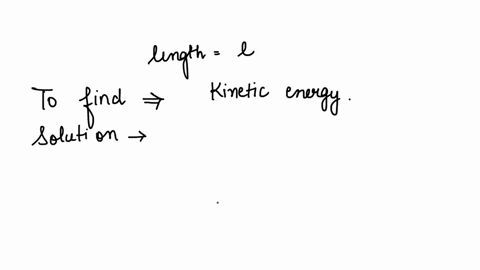 length = l
To find ⇒ Kinetic energy.
Solution →